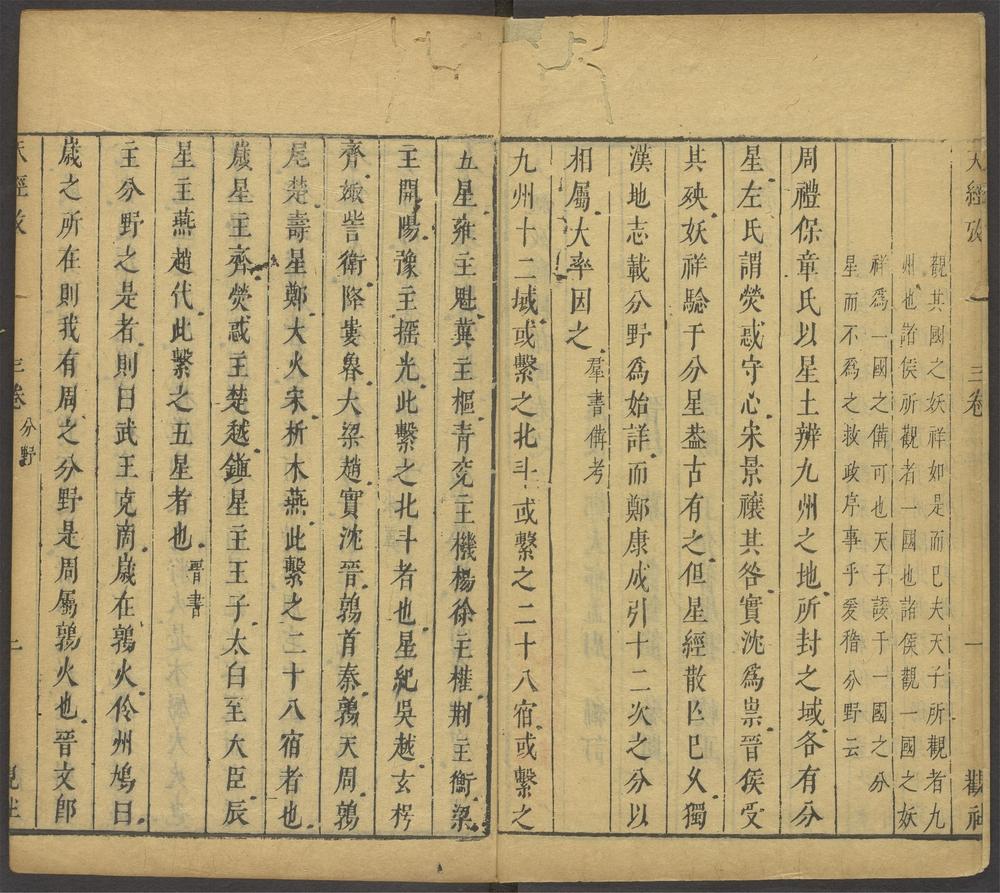 天經攷 三卷 一 觀社
觀其國之妖祥如是而巳夫天子所觀者九
州也諸侯所觀者一國也諸侯觀一國之妖
祥爲一國之備可也天子諉于一國之分
星而不爲之救政序事乎爰稽分野云
周禮保章氏以星土辨九州之地所封之域各有分
星左氏謂熒惑守心宋景禳其咎實沈爲祟晉侯受
其殃妖祥驗于分星葢古有之但星經散亾巳乆獨
漢地志載分野爲始詳而鄭康成引十二次之分以
相屬大率因之 羣書備考
九州十二域或繫之北斗或繫之二十八宿或繫之
五星雍主魁冀主樞青兖主機楊徐主權荆主衡梁
主開陽豫主摇光此繫之北斗者也星紀吳越玄枵
齊娵訾衛降婁魯大梁趙實沈晉鶉首秦鶉天周鶉
尾楚壽星鄭大火宋析木燕此繫之二十八宿者也
歲星主齊熒惑主楚越鎭星主王子太白主大臣辰
星主燕趙代此繫之五星者也 晉書
主分野之是者則曰武王克商歲在鶉火伶州鳩曰
歲之所在則我有周之分野是周屬鶉火也晉文卽
天經攷 三卷 分野